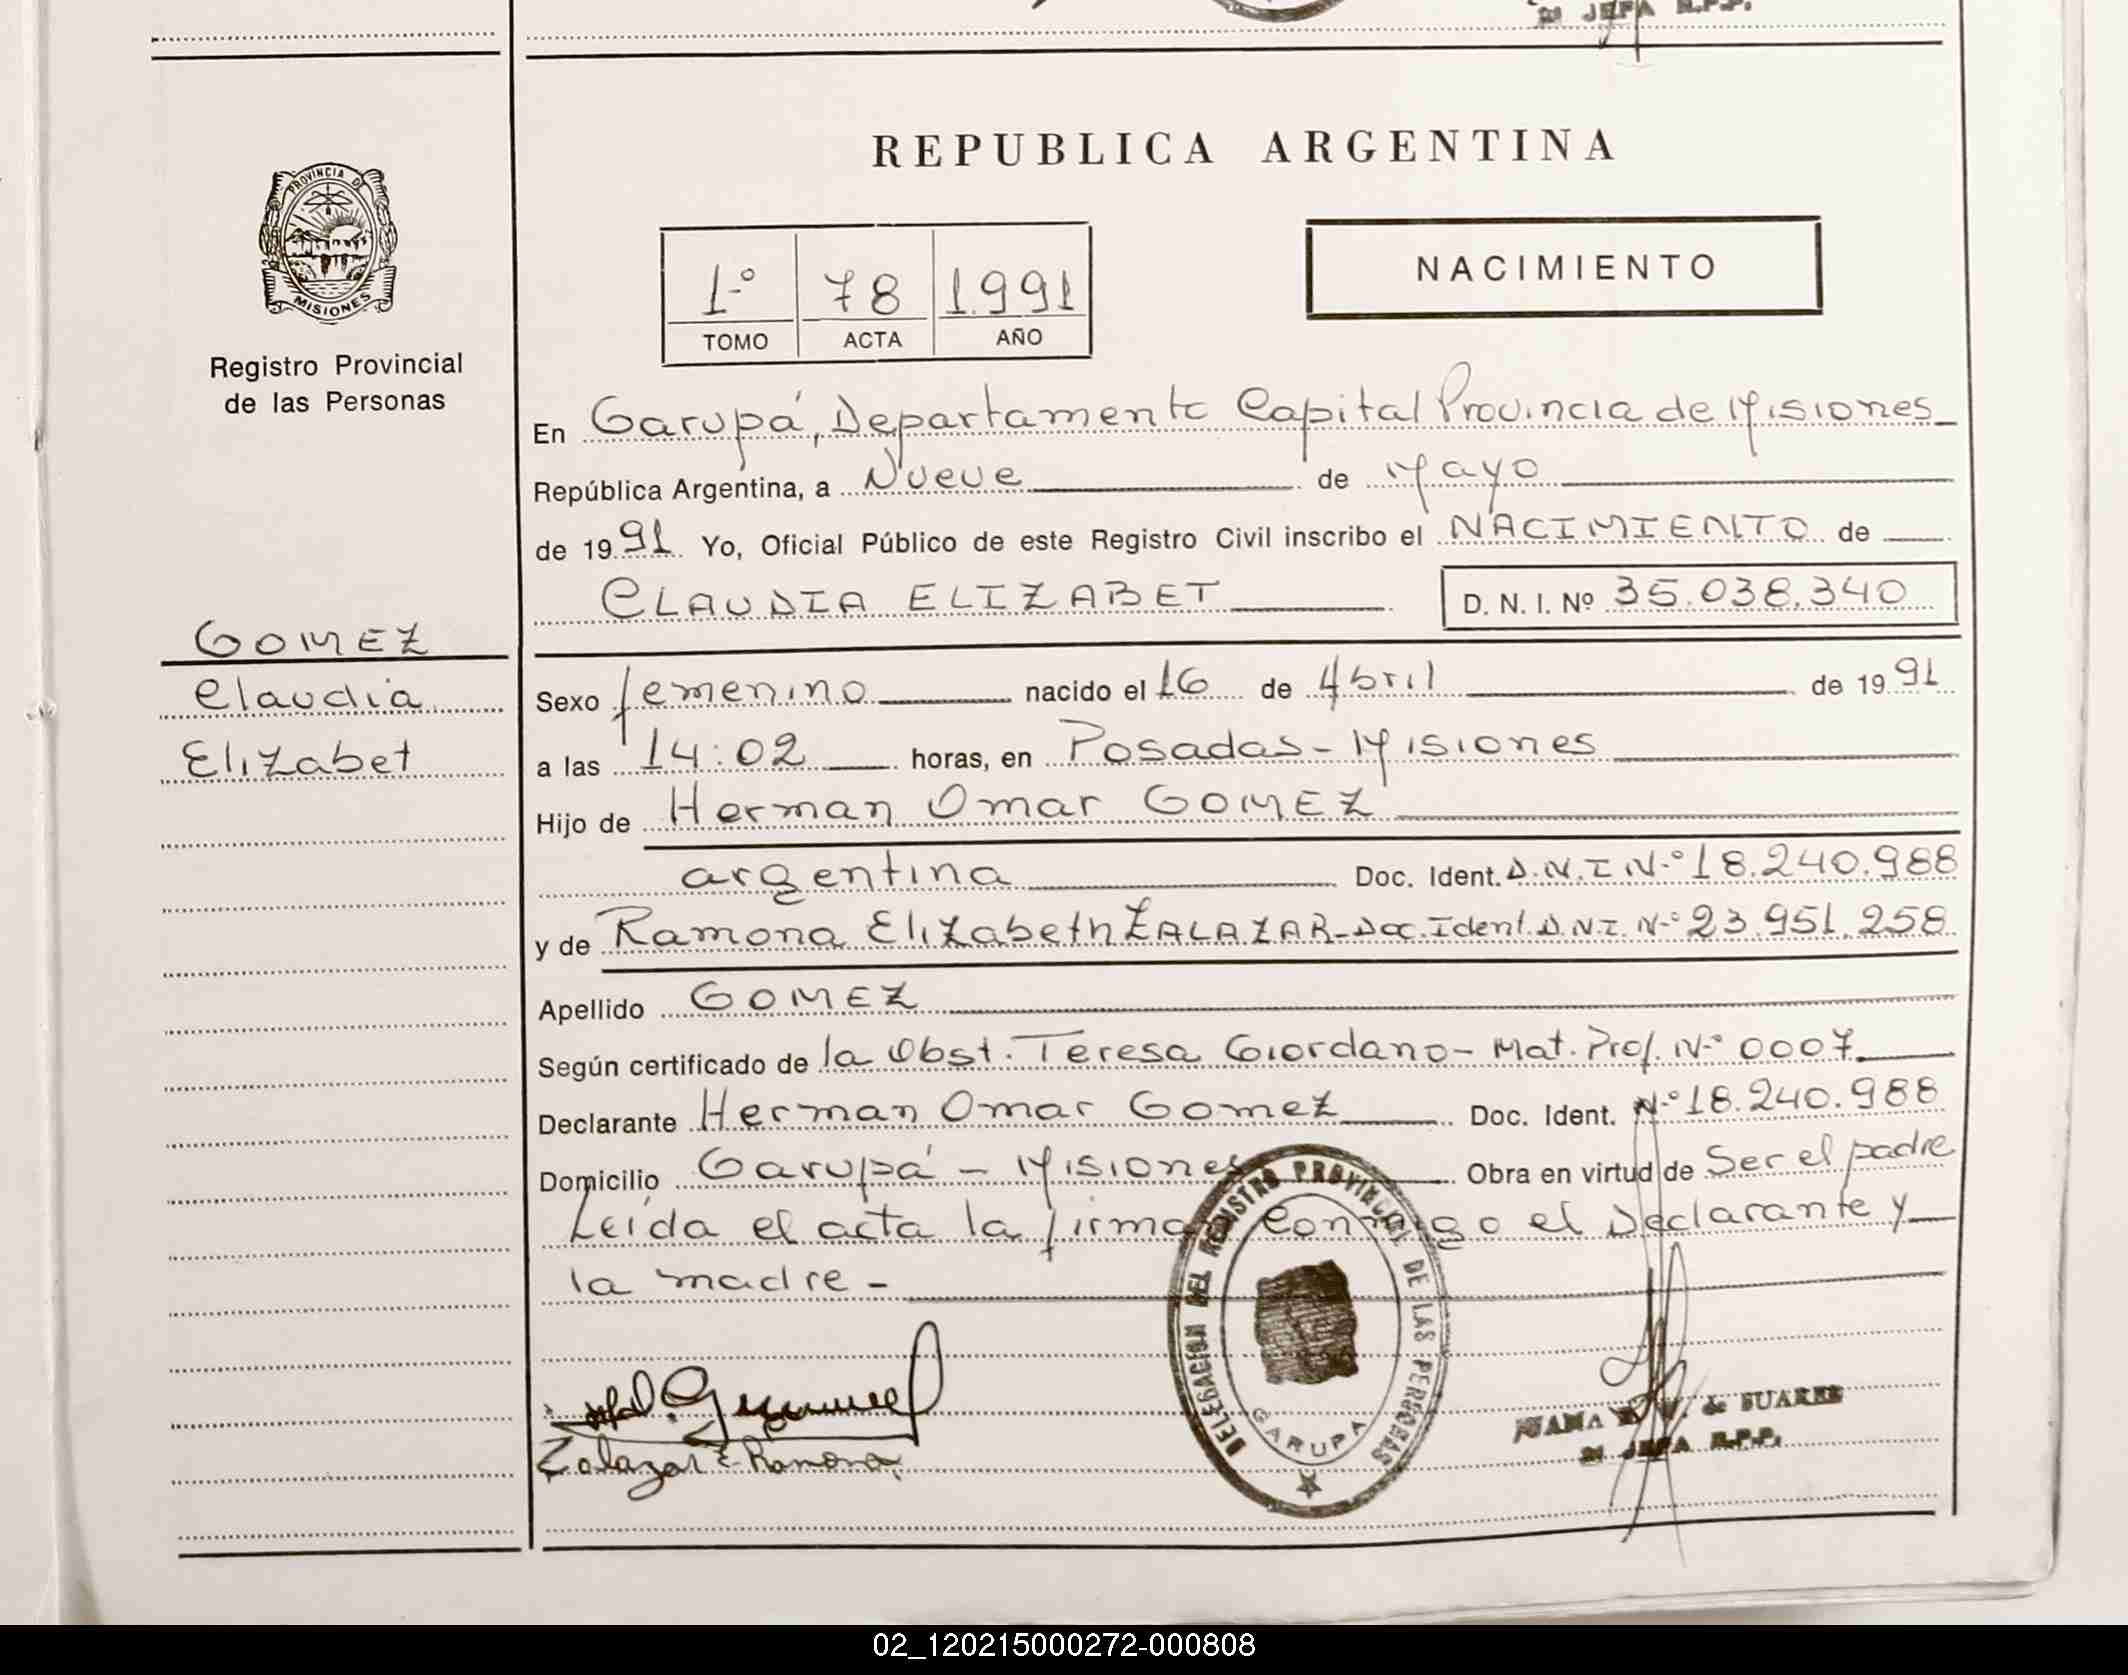 2º JEFA R.P.P.
REPUBLICA ARGENTINA
PROVINCIA DE
MISIONES
Registro Provincial
de las Personas
1.º 78 1.991
TOMO ACTA AÑO
NACIMIENTO
En Garupá, Departamento Capital Provincia de Misiones
República Argentina, a Nueve de Mayo
de 1991 Yo, Oficial Público de este Registro Civil inscribo el NACIMIENTO de
CLAUDIA ELIZABET D. N. I. Nº 35.038.340
GOMEZ
Claudia
Elizabet
Sexo femenino nacido el 16 de Abril de 1991
a las 14:02 horas, en Posadas - Misiones
Hijo de Herman Omar GOMEZ
argentina Doc. Ident. D.N.I N.º 18.240.988
y de Ramona Elizabeth ZALAZAR - Doc. Ident. D.N.I. N.º 23.951.258
Apellido GOMEZ
Según certificado de la Obst. Teresa Giordano - Mat. Prof. N.º 0007
Declarante Herman Omar Gomez Doc. Ident. N.º 18.240.988
Domicilio Garupá - Misiones Obra en virtud de Ser el padre
Leída el acta la firma conmigo el Declarante y
la madre -
DELEGACION DEL REGISTRO PROVINCIAL DE LAS PERSONAS
GARUPA
Zalazar E. Ramona
JUANA de SUAREZ
2º JEFA R.P.P.
02_120215000272-000808